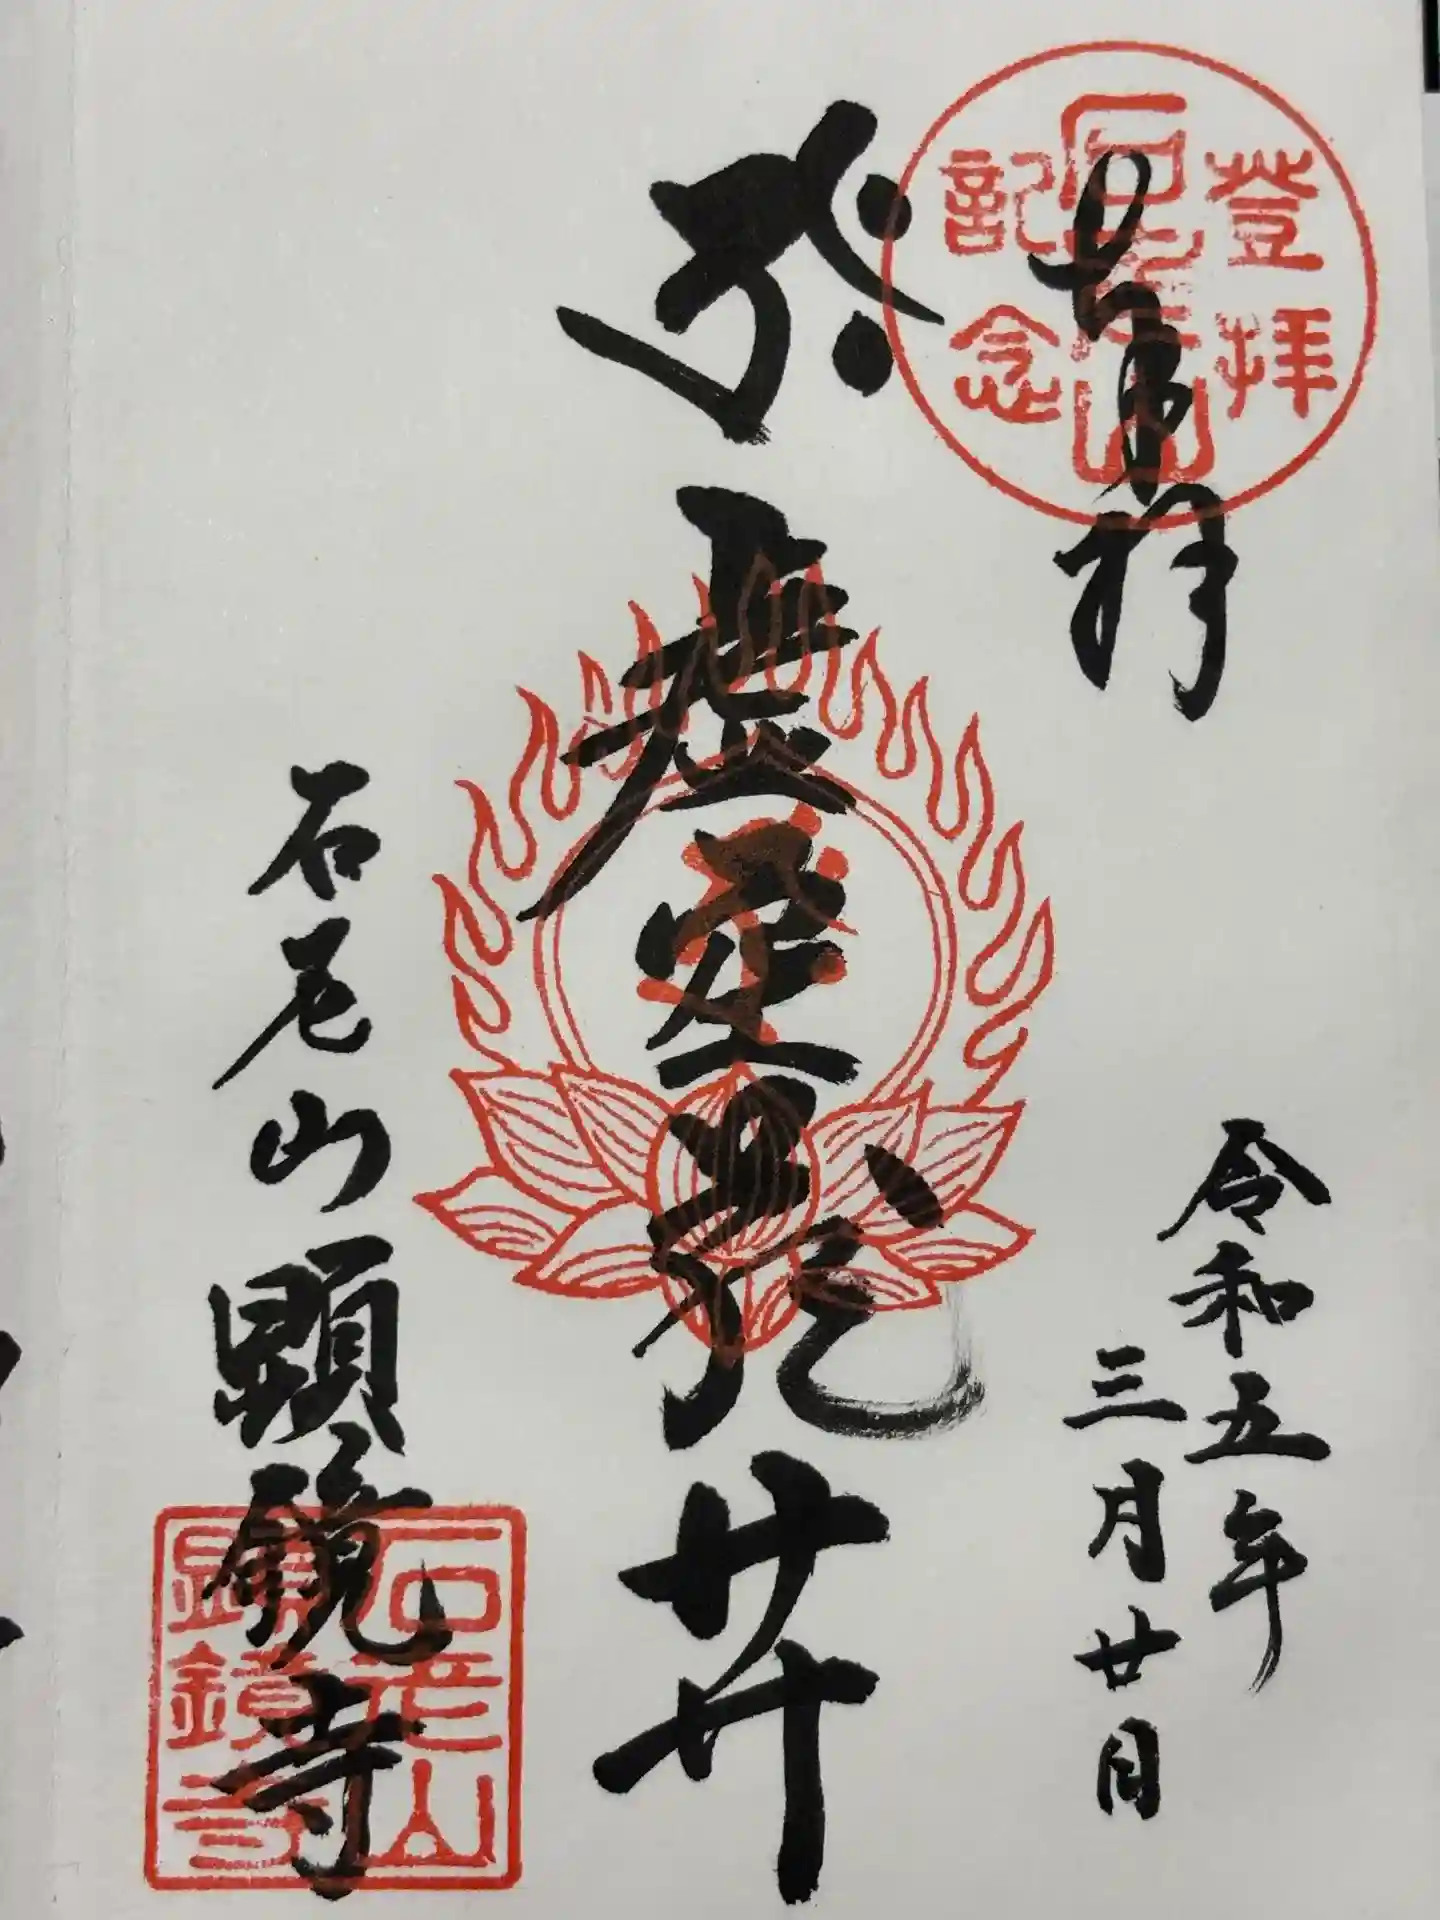 登拝
石老山
記念
奉拝
令和五年
三月廿日
虚空蔵𦬇
石老山顕鏡寺
石老山
顕鏡寺